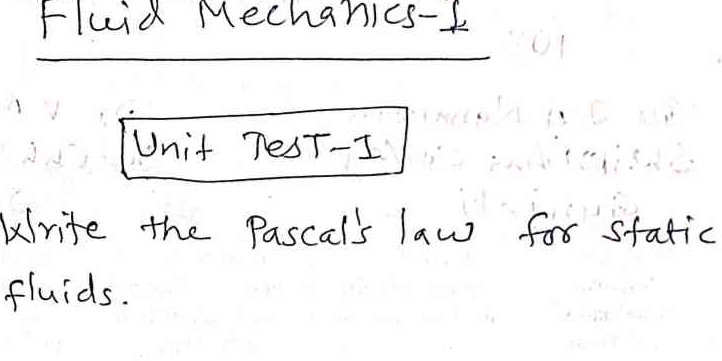 Fluid Mechanics-I
Unit TesT-I
Write the Pascal's law for static
fluids.